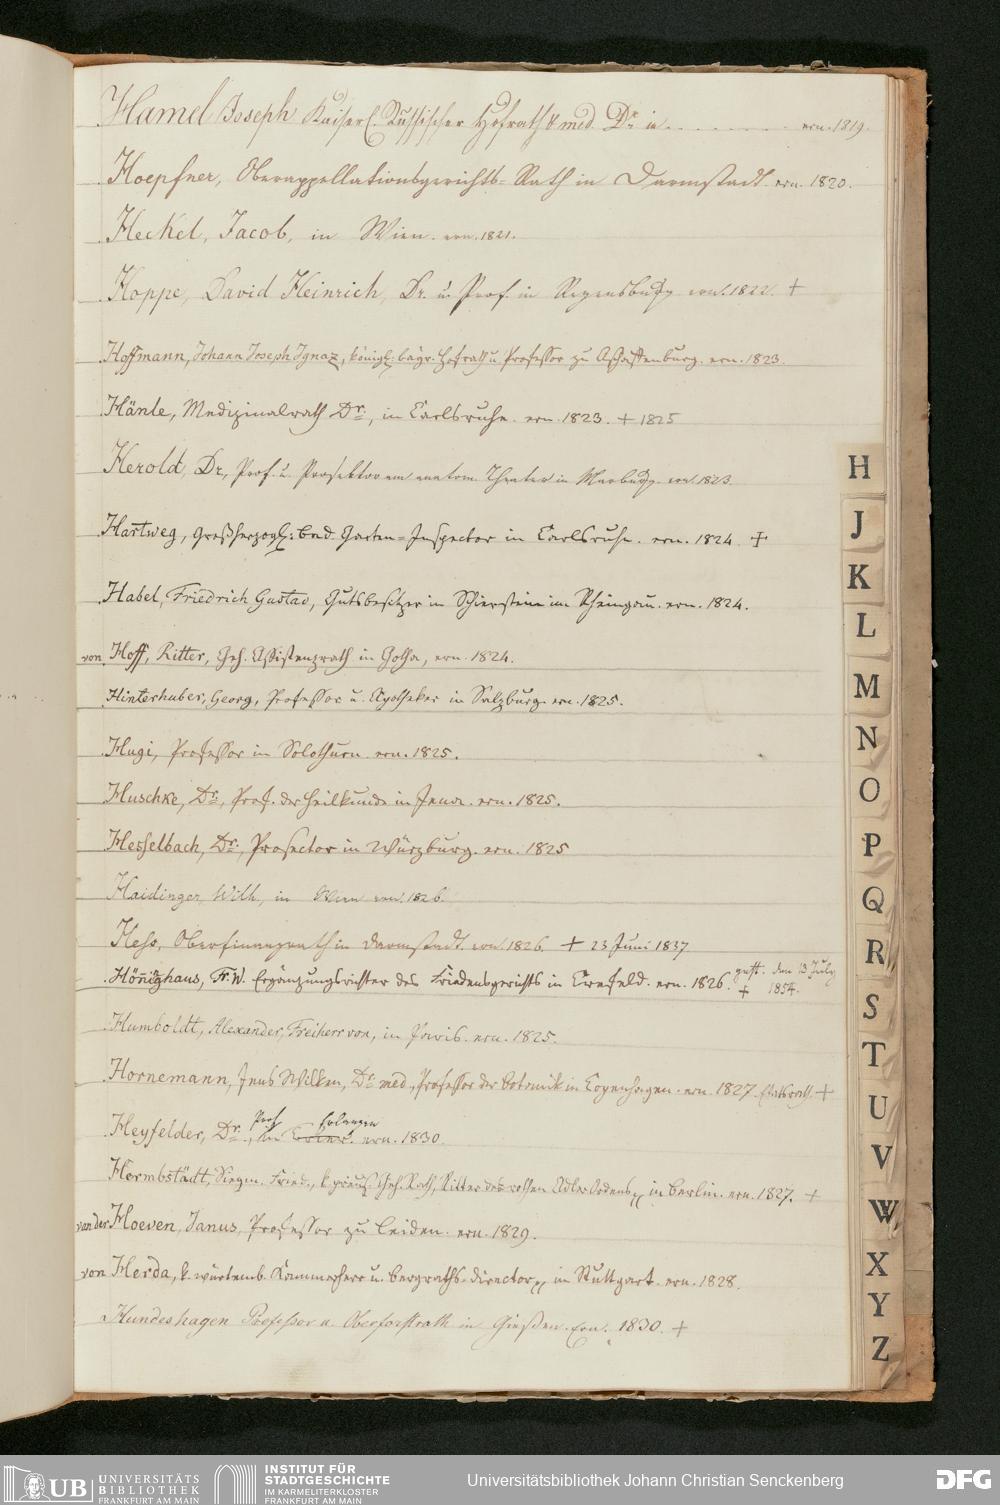 Hamel Joseph Kaiserl. Russischer Hofrath & med. Dr. in . . . . . . . . ern. 1819.
Hoepfner, Oberappellationsgerichts-Rath in Darmstadt. ern. 1820.
Heckel, Jacob, in Wien. ern. 1821.
Hoppe, David Heinrich, Dr. u. Prof. in Regensburg ern. 1822. †
Hoffmann, Johann Joseph Ignaz, königl. bayr. Hofrath u. Professor zu Aschaffenburg. ern. 1823.
Hänle, Medizinalrath Dr., in Carlsruhe. ern. 1823. † 1825
Herold, Dr., Prof. u. Prosektor am anatom. Theater in Marburg. ern. 1823.
Hartweg, Großherzogl. bad. Garten-Inspector in Carlsruhe. ern. 1824. †
Habel, Friedrich Gustav, Gutsbesitzer in Schierstein im Rheingau. ern. 1824.
von Hoff, Ritter, Geh. Assistenzrath in Gotha, ern. 1824.
Hinterhuber, Georg, Professor u. Apotheker in Salzburg. ern. 1825.
Hugi, Professor in Solothurn. ern. 1825.
Huschke, Dr., Prof. der Heilkunde in Jena. ern. 1825.
Hesselbach, Dr., Prosector in Würzburg. ern. 1825
Haidinger, Wilh., in Wien ern. 1826.
Hess, Oberfinanzrath in Darmstadt. ern. 1826. † 23 Juni 1837
Höninghaus, Fr. W. Ergänzungsrichter des Friedensgerichts in Crefeld. ern. 1826. † gest. den 13 July 1854.
Humboldt, Alexander, Freiherr von, in Paris. ern. 1825.
Hornemann, Jens Wilken, Dr. med., Professor der Botanik in Copenhagen. ern. 1827. Etatsrath. †
Heyfelder, Dr., Prof. in Trier. Erlangen ern. 1830
Hermbstädt, Siegm. Fried., k. preuß. Geh. Rath, Ritter des rothen Adler Ordens, in Berlin. ern. 1827. †
van der Hoeven, Janus, Professor zu Leiden. ern. 1829.
von Herda, k. würtemb. Kammerherr u. Bergraths-Director, in Stuttgart. ern. 1828.
Hundeshagen Professor u. Oberforstrath in Gießen. Ern. 1830. †
H
J
K
L
M
N
O
P
Q
R
S
T
U
V
W
X
Y
Z
UB UNIVERSITÄTS
BIBLIOTHEK
FRANKFURT AM MAIN
INSTITUT FÜR
STADTGESCHICHTE
IM KARMELITERKLOSTER
FRANKFURT AM MAIN
Universitätsbibliothek Johann Christian Senckenberg
DFG